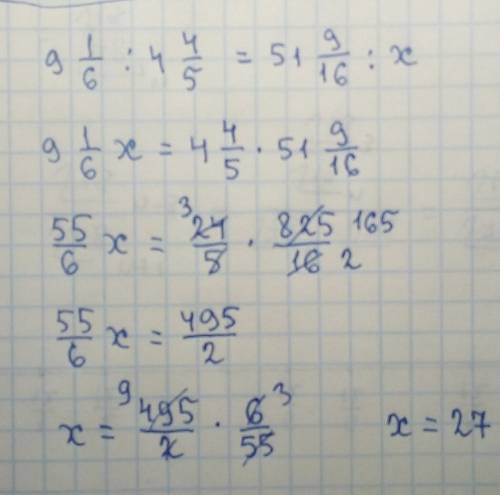 9 1/6 : 4 4/5 = 51 9/16 : x
9 1/6 x = 4 4/5 · 51 9/16
55/6 x = 3 24/5 · 825/16 165 2
55/6 x = 495/2
x = 9 495/2 · 6/55 3 x = 27